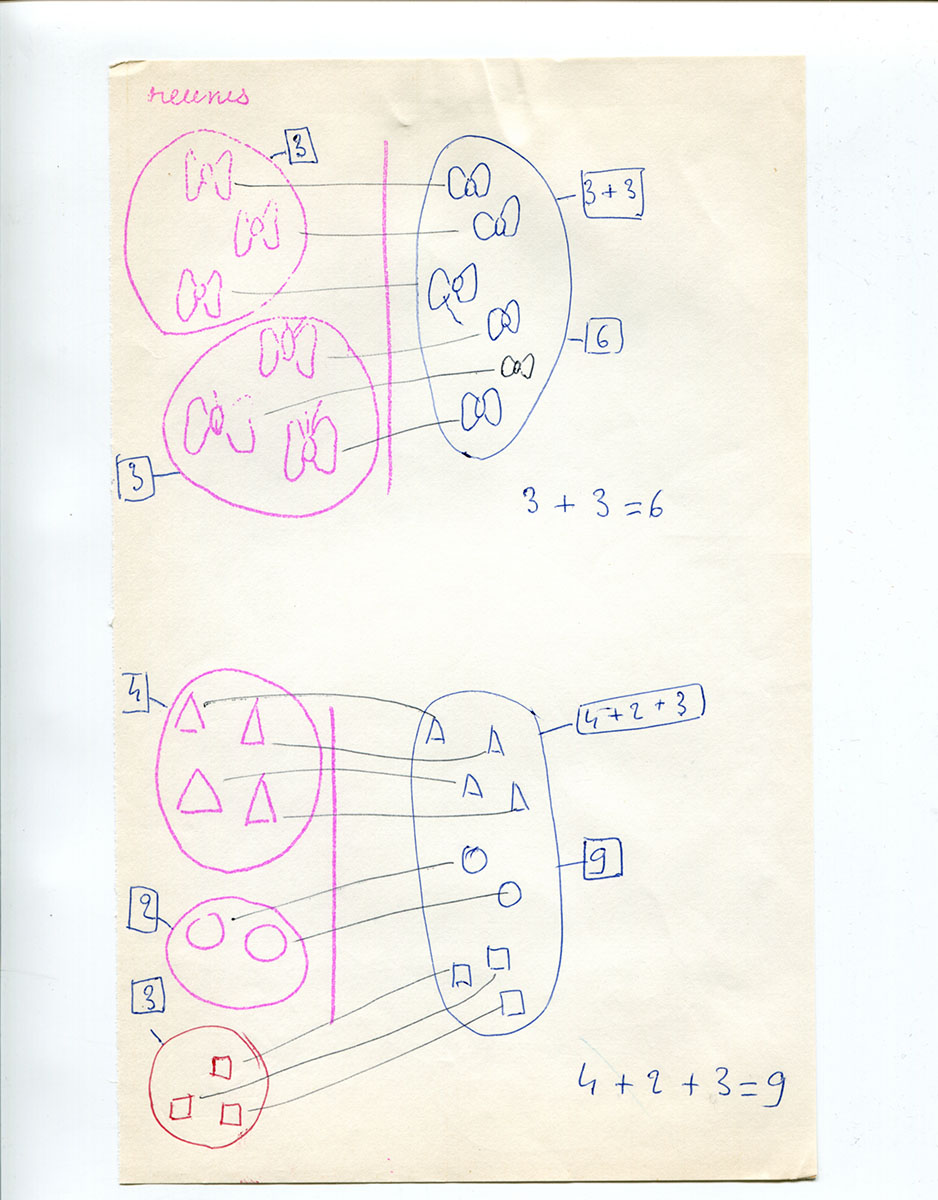 reunis
3
3 + 3
6
3
3 + 3 = 6
4
4 + 2 + 3
9
2
3
4 + 2 + 3 = 9